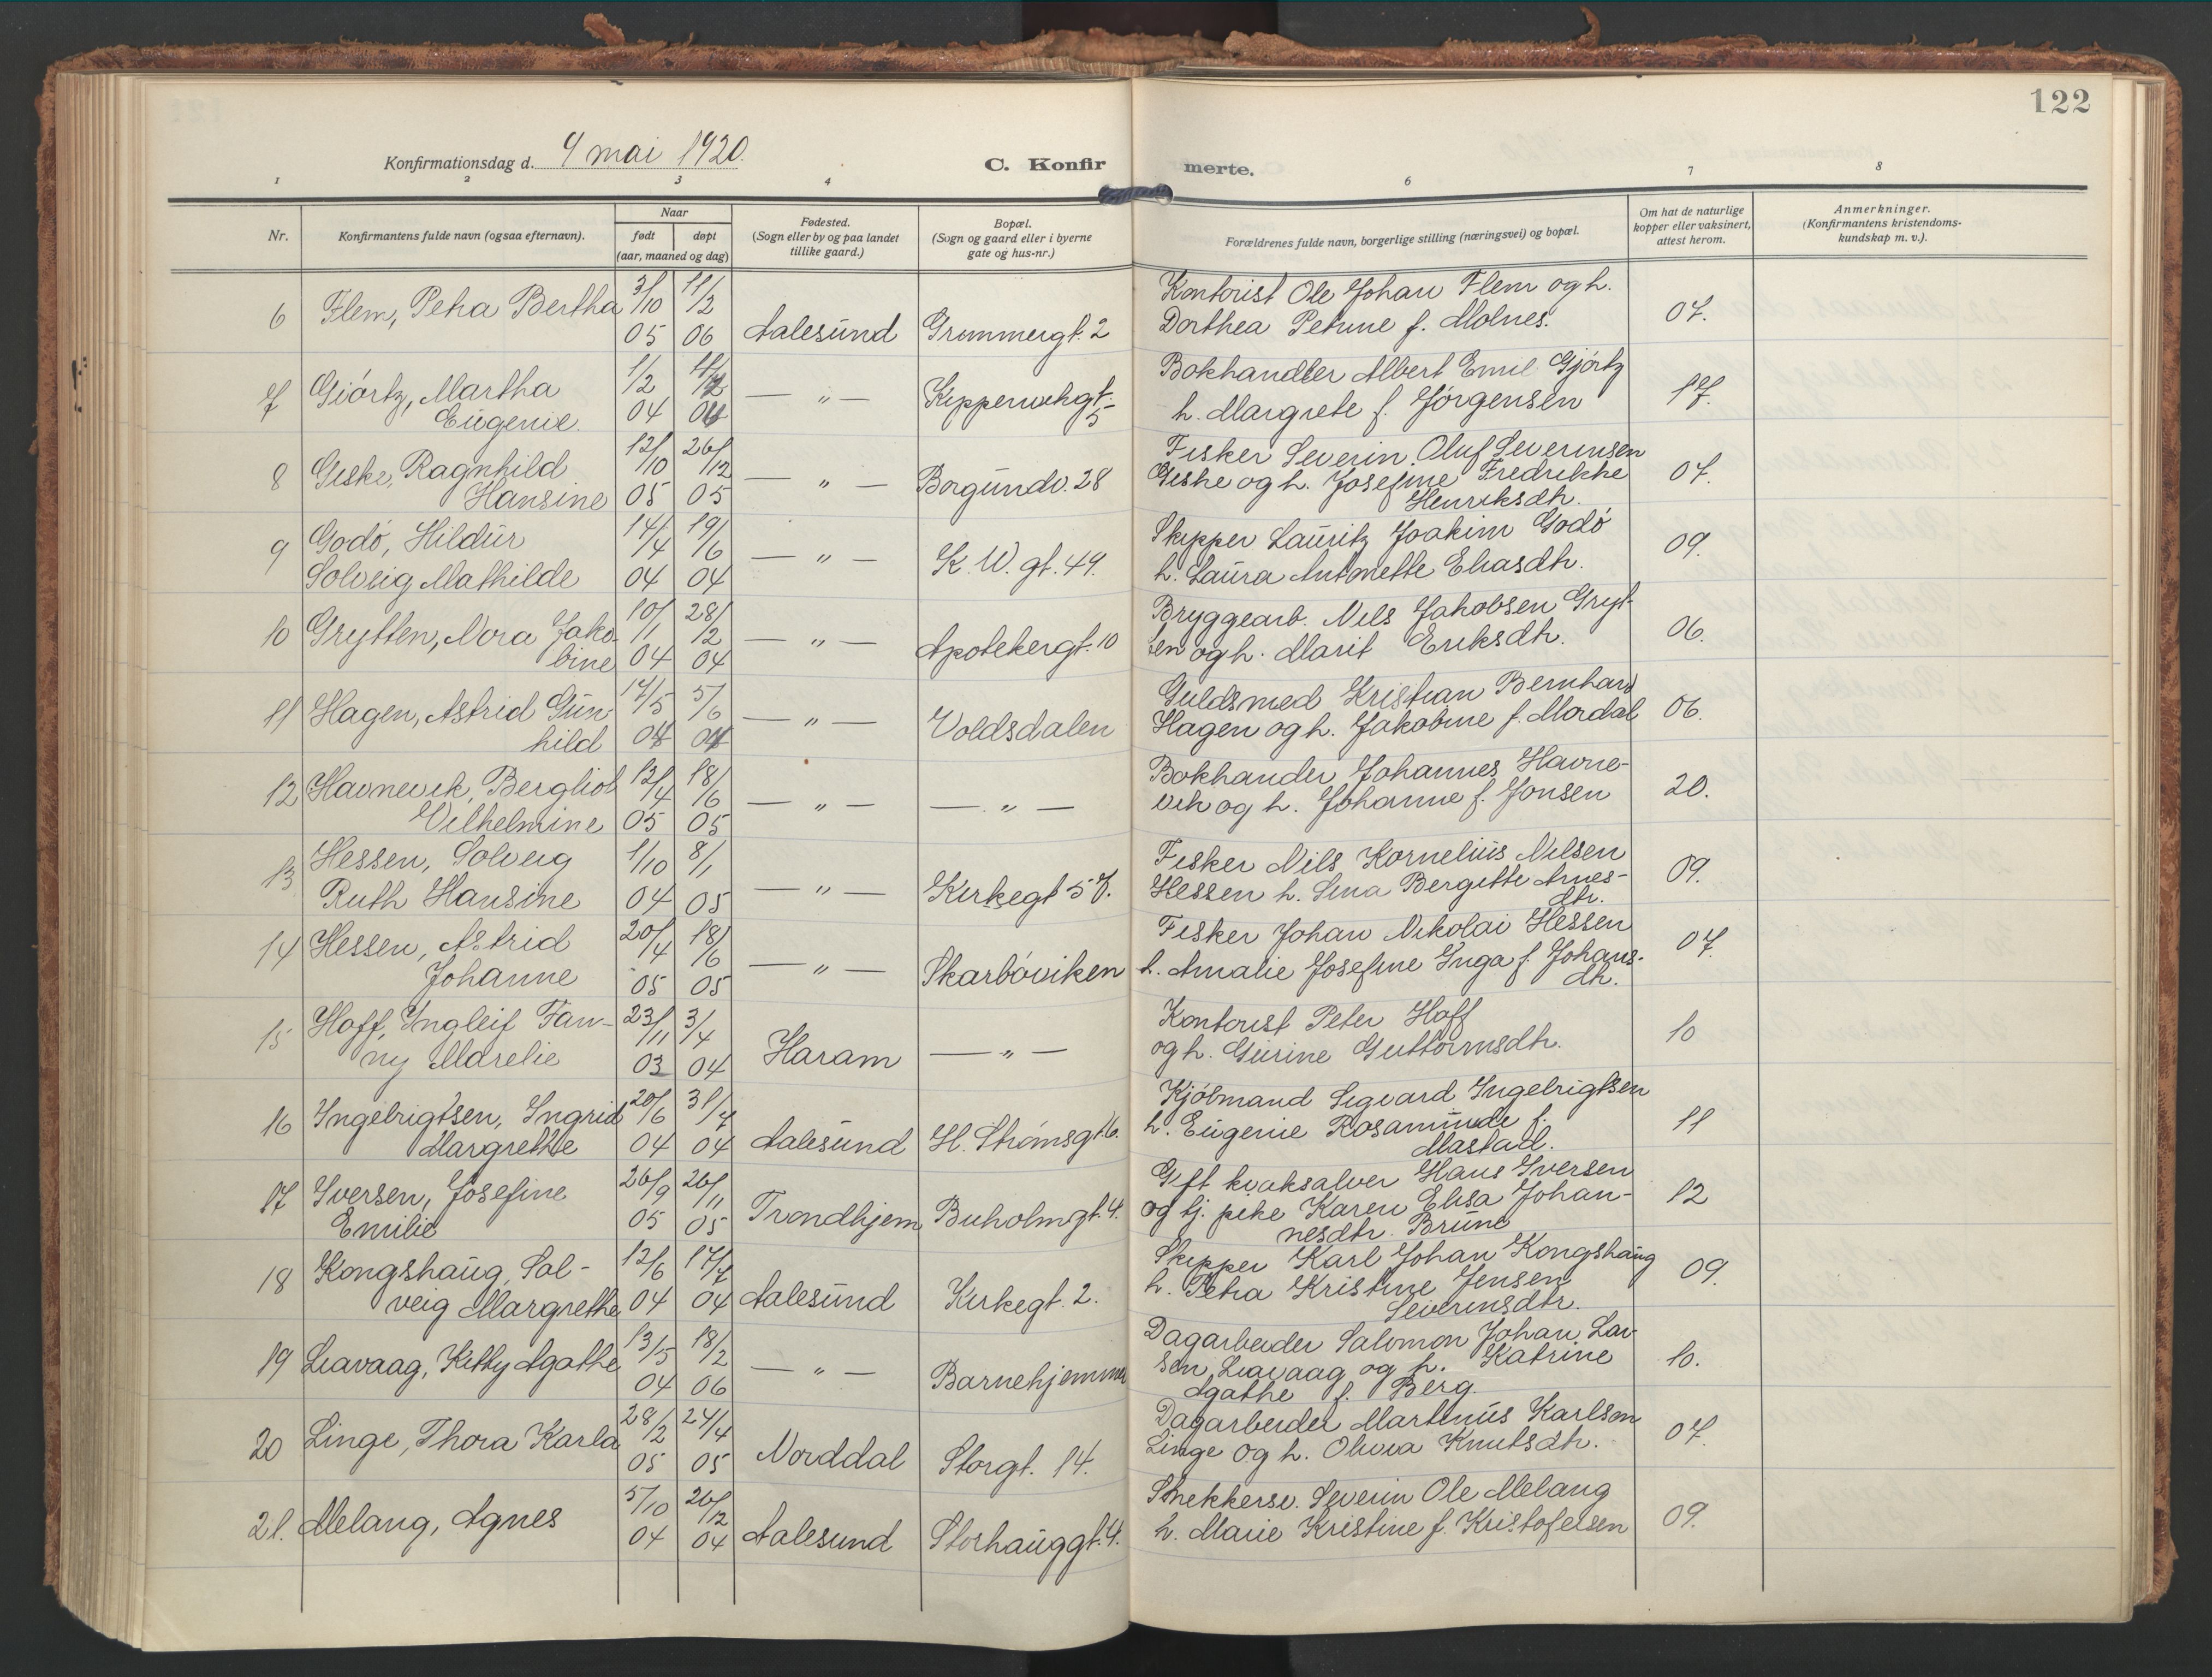 122
Konfirmationsdag d. 9 mai 1920.
C. Konfirmerte.
1 2 3 4 6 7 8
Nr.
Konfirmantens fulde navn (ogsaa efternavn).
Naar
født døpt
(aar, maaned og dag)
Fødested.
(Sogn eller by og paa landet
tillike gaard.)
Bopæl.
(Sogn og gaard eller i byerne
gate og hus-nr.)
Forældrenes fulde navn, borgerlige stilling (næringsvei) og bopæl.
Om hat de naturlige
kopper eller vaksinert,
attest herom.
Anmerkninger.
(Konfirmantens kristendoms-
kundskap m. v.).
6 Flem, Petra Bertha 31/10 05 11/2 06 Aalesund Grimmergt. 2
Kontorist Ole Johan Flem og h.
Dorthea Petrine f. Molnes. 07.
7 Giörtz, Martha
Eugenie. 1/2 04 Kipperviksgt. 5
— " —
Bokhandler Albert Emil Gjörtz
h. Margrete f. Jørgensen 17.
8 Giske, Ragnhild
Hansine 12/10 05 26/12 05 — " — Borgundv. 28
Fisker Severin Oluf Severinsen
Giske og h. Josefine Fredrikke
Henriksdtr. 07.
9 Godö, Hildur
Solveig Mathilde 14/4 04 19/6 04 — " — K. W. gt. 49.
Skipper Lauritz Joakim Godö
h. Laura Antonette Eliasdtr. 09.
10 Grytten, Nora Jako-
bine 10/1 04 28/2 04 — " — Apotekergt. 10
Bryggearb. Nils Jakobsen Gryt-
ten og h. Marit Eriksdtr. 06.
11 Hagen, Astrid Gun-
hild 17/5 04 5/6 04 — " — Voldsdalen
Guldsmed Kristian Bernhard
Hagen og h. Jakobine f. Mordal 06.
12 Havnevik, Bergliot
Vilhelmine 12/4 05 18/6 05 — " — — " —
Bokhander Johannes Havne-
vik og h. Johanne f. Jonsen 20.
13 Hessen, Solveig
Ruth Hansine 1/10 04 8/1 05 — " — Kirkegt 57.
Fisker Nils Kornelius Nilsen
Hessen h. Sina Bergitte Arnes-
dtr. 09.
14 Hessen, Astrid
Johanne 20/4 05 18/6 05 — " — Skarböviken
Fisker Johan Nikolai Hessen
h. Amalie Josefine Inga f. Johans-
dtr. 07.
15 Hoff, Ingleif Fan-
ny Marelie 23/11 03 3/4 04 Haram — " —
Kontorist Peter Hoff
og h. Gurine Guttormsdtr. 10
16 Ingebrigtsen, Ingrid
Margrethe 20/6 04 31/7 04 Aalesund H. Strömsgt 6.
Kjöbmand Sigvard Ingebrigtsen
h. Eugenie Rosamunde f.
Mastad. 11
17 Iversen, Josefine
Emilie 26/9 05 26/11 05 Trondhjem Buholmgt. 4.
Gift kvaksalver Hans Iversen
og tj. pike Karen Elisa Johan-
nesdtr. Brune 12
18 Kongshaug, Sol-
veig Margrethe 12/6 04 17/7 04 Aalesund Kirkegt. 2.
Skipper Karl Johan Kongshaug
h. Petra Kristine Jensen
Severinsdtr. 09.
19 Liavaag, Kitty Agathe 13/5 04 18/2 06 — " — Barnehjemmet
Dagarbeider Salomon Johan Lar-
sen Liavaag og h. Katrine
Agathe f. Berg. 10.
20 Linge, Thora Karla 28/2 05 24/4 05 Norddal Storgt. 14.
Dagarbeider Martinus Karlsen
Linge og h. Olivia Knutsdtr. 07.
21. Melang, Agnes 5/10 04 26/12 04 Aalesund Storhauggt. 4.
Snekkersv. Severin Ole Melang
h. Marie Kristine f. Kristofersen 09.